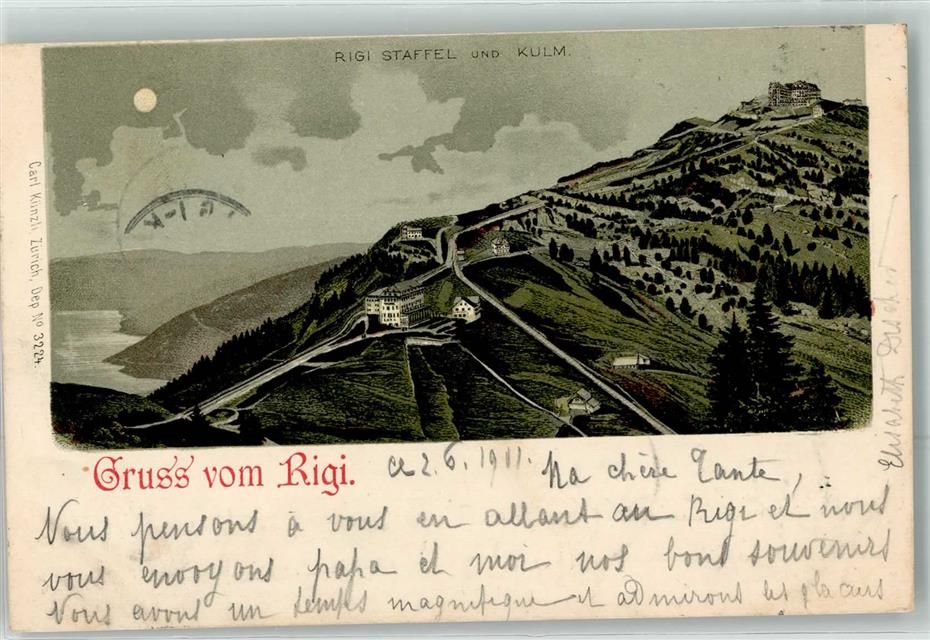 RIGI STAFFEL UND KULM.
Carl Künzli, Zürich, Dep Nº 3224.
Gruss vom Rigi.
ce 2.6.1911. Ma chère Tante,
Nous pensons à vous en allant au Rigi et nous
vous envoyons papa et moi nos bons souvenirs
Nous avons un temps magnifique et admirons les glaciers
Elisabeth